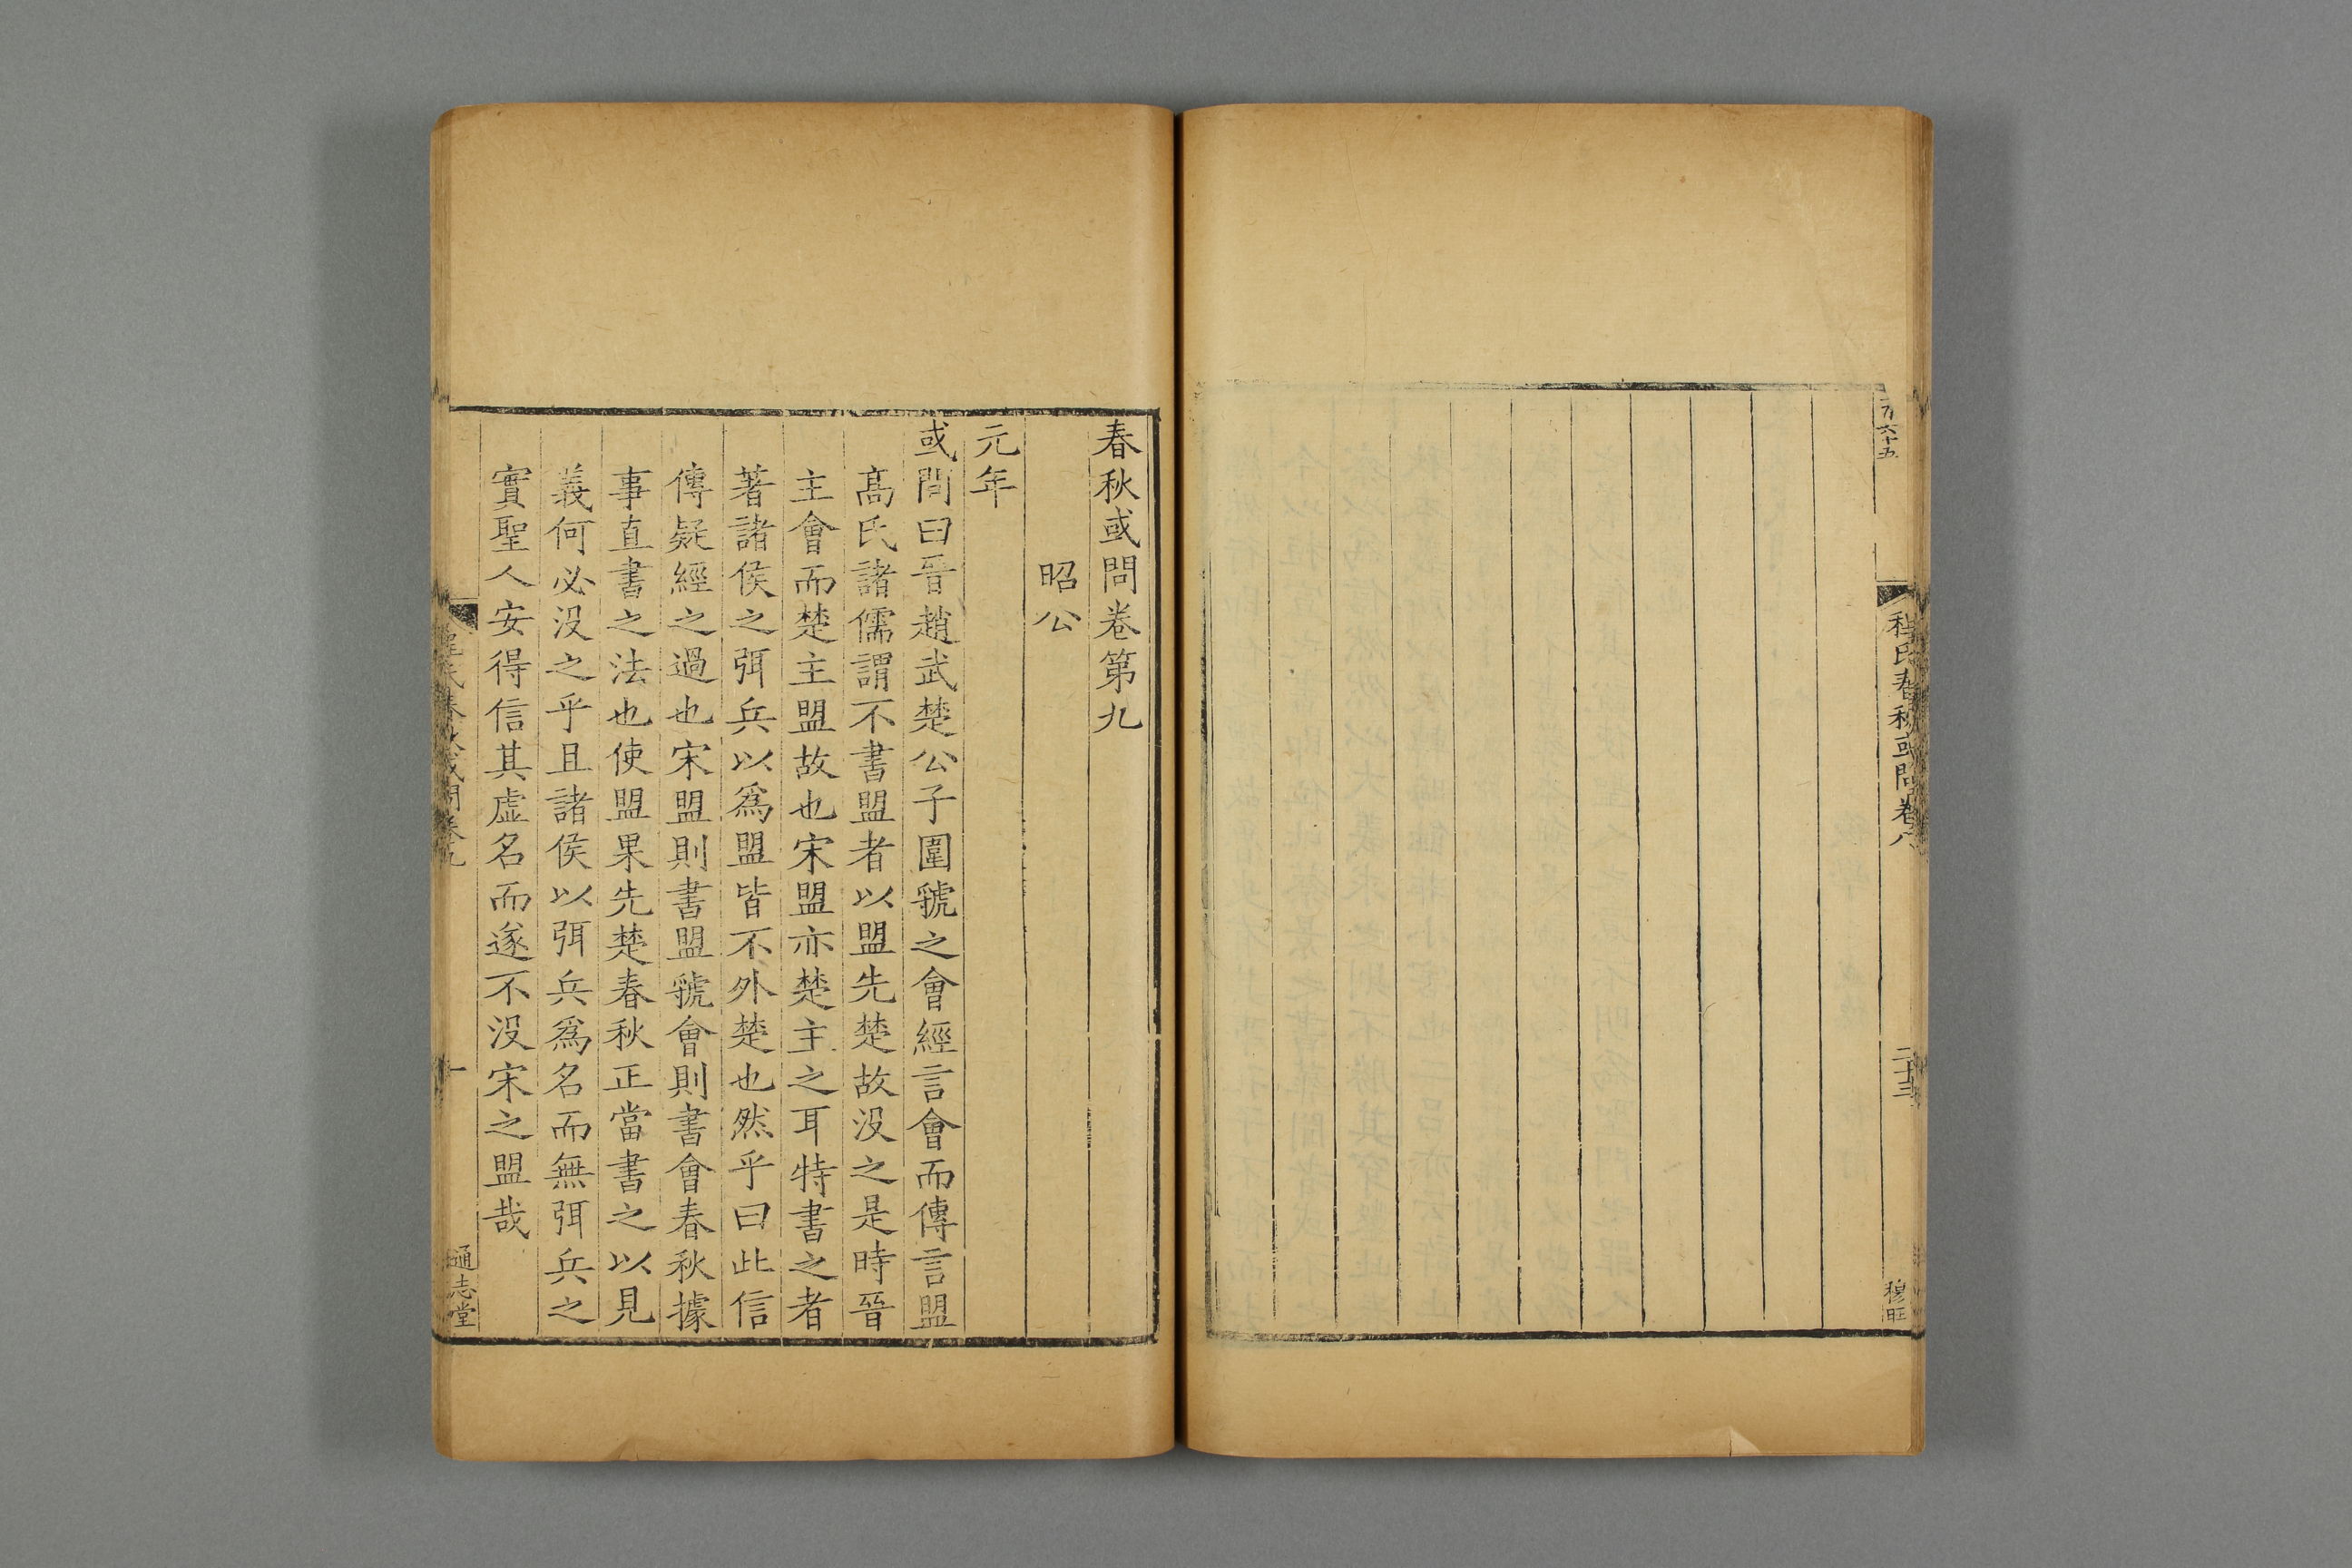 程氏春秋或問卷八
二十三
穆旺
春秋或問卷第九
昭公
元年
或問曰晉趙武楚公子圍虢之會經言會而傳言盟
髙氏諸儒謂不書盟者以盟先楚故没之是時晉
主會而楚主盟故也宋盟亦楚主之耳特書之者
著諸侯之弭兵以爲盟皆不外楚也然乎曰此信
傳疑經之過也宋盟則書盟虢會則書會春秋據
事直書之法也使盟果先楚春秋正當書之以見
義何必没之乎且諸侯以弭兵爲名而無弭兵之
實聖人安得信其虛名而遂不没宋之盟哉
程氏春秋或問卷九
一
通志堂